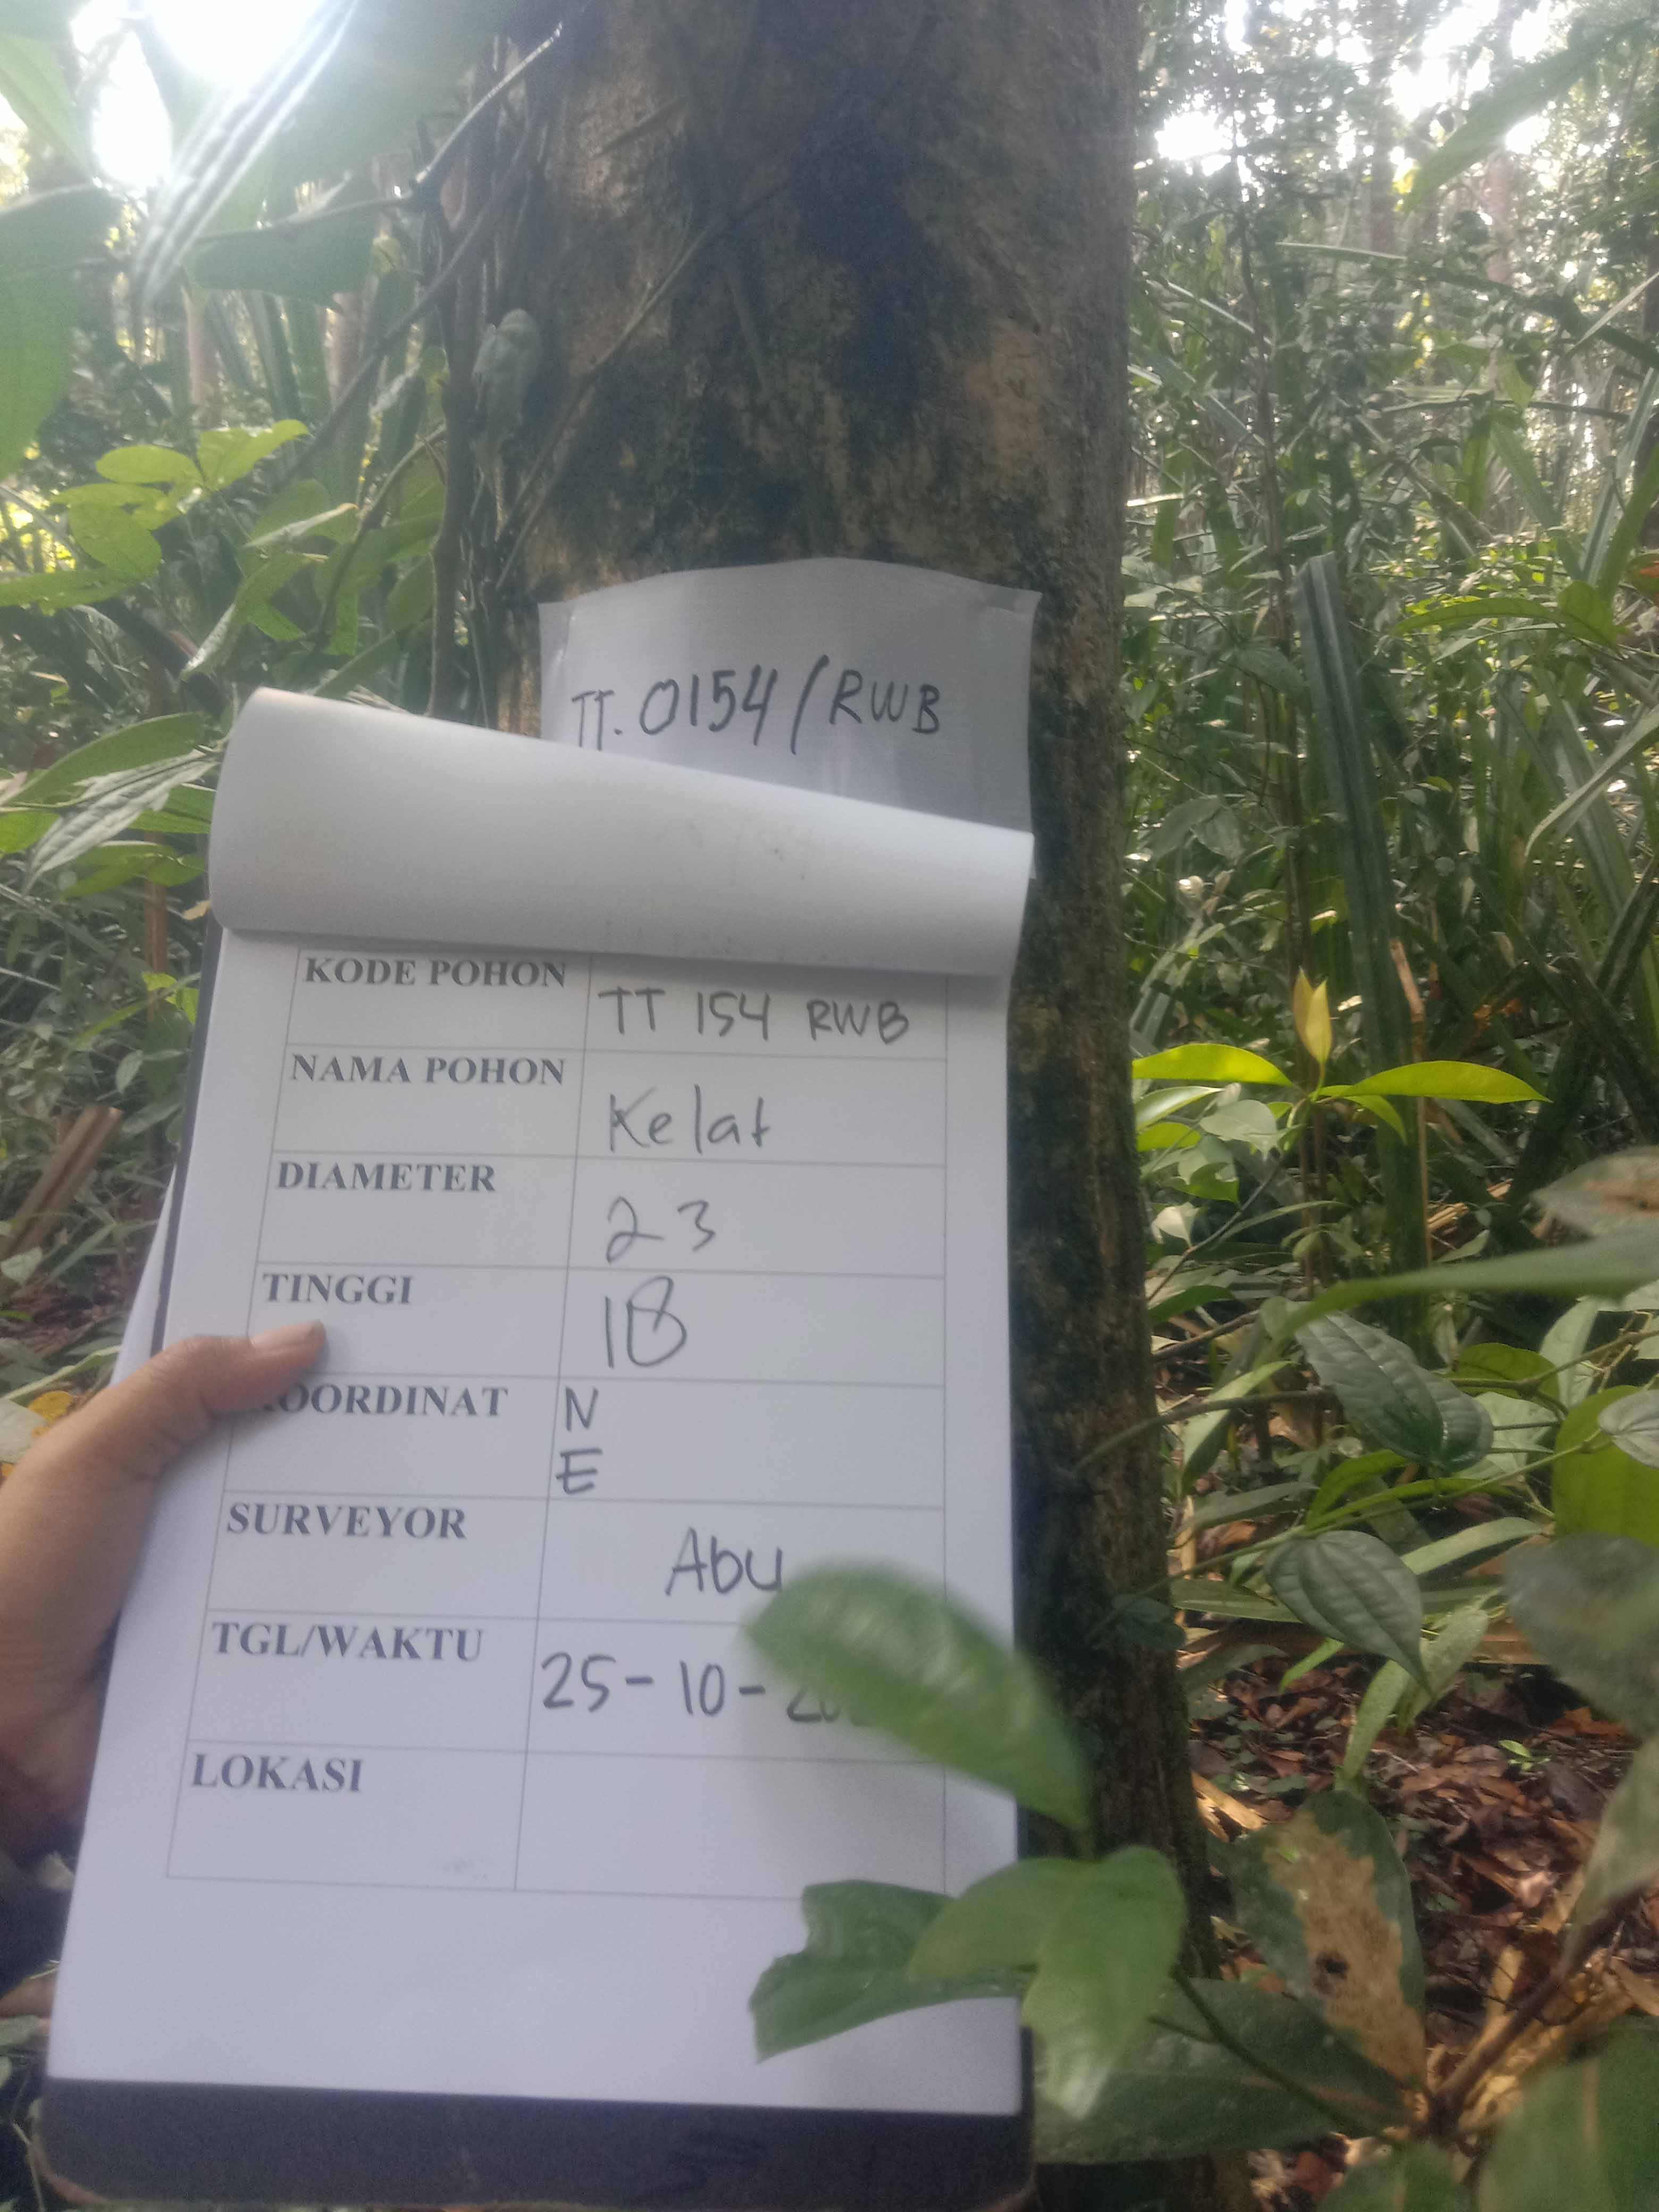 TT. 0154/RWB
KODE POHON TT 154 RWB
NAMA POHON Kelat
DIAMETER 23
TINGGI 18
KOORDINAT N
E
SURVEYOR Abu
TGL/WAKTU 25-10-
LOKASI